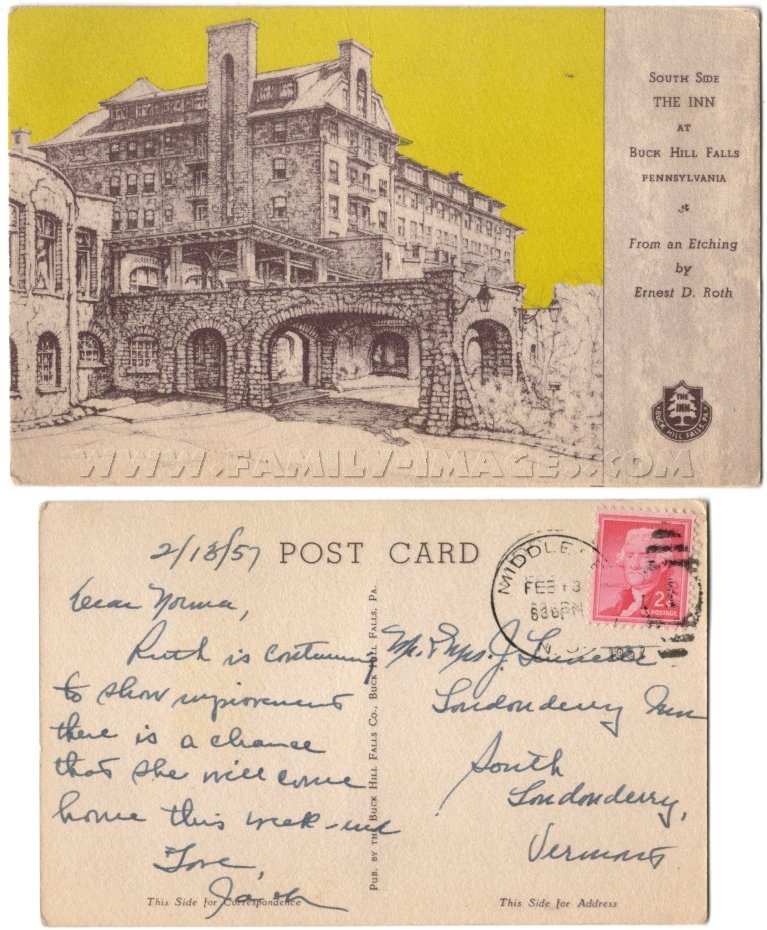 SOUTH SIDE
THE INN
AT
BUCK HILL FALLS
PENNSYLVANIA
From an Etching
by
Ernest D. Roth
THE
INN
BUCK HILL FALLS PA
WWW.FAMILY-IMAGES.COM
2/13/57
POST CARD
MIDDLE
FEB 13
PM
N.Y.
1957
2¢
U.S. POSTAGE
Dear Norma,
Ruth is continuing
to show improvement
there is a chance
that she will come
home this week-end
Love,
Jack
This Side for Correspondence
PUB. BY THE BUCK HILL FALLS CO., BUCK HILL FALLS, PA.
Mr. & Mrs. J.
Londonderry Inn
South
Londonderry,
Vermont
This Side for Address